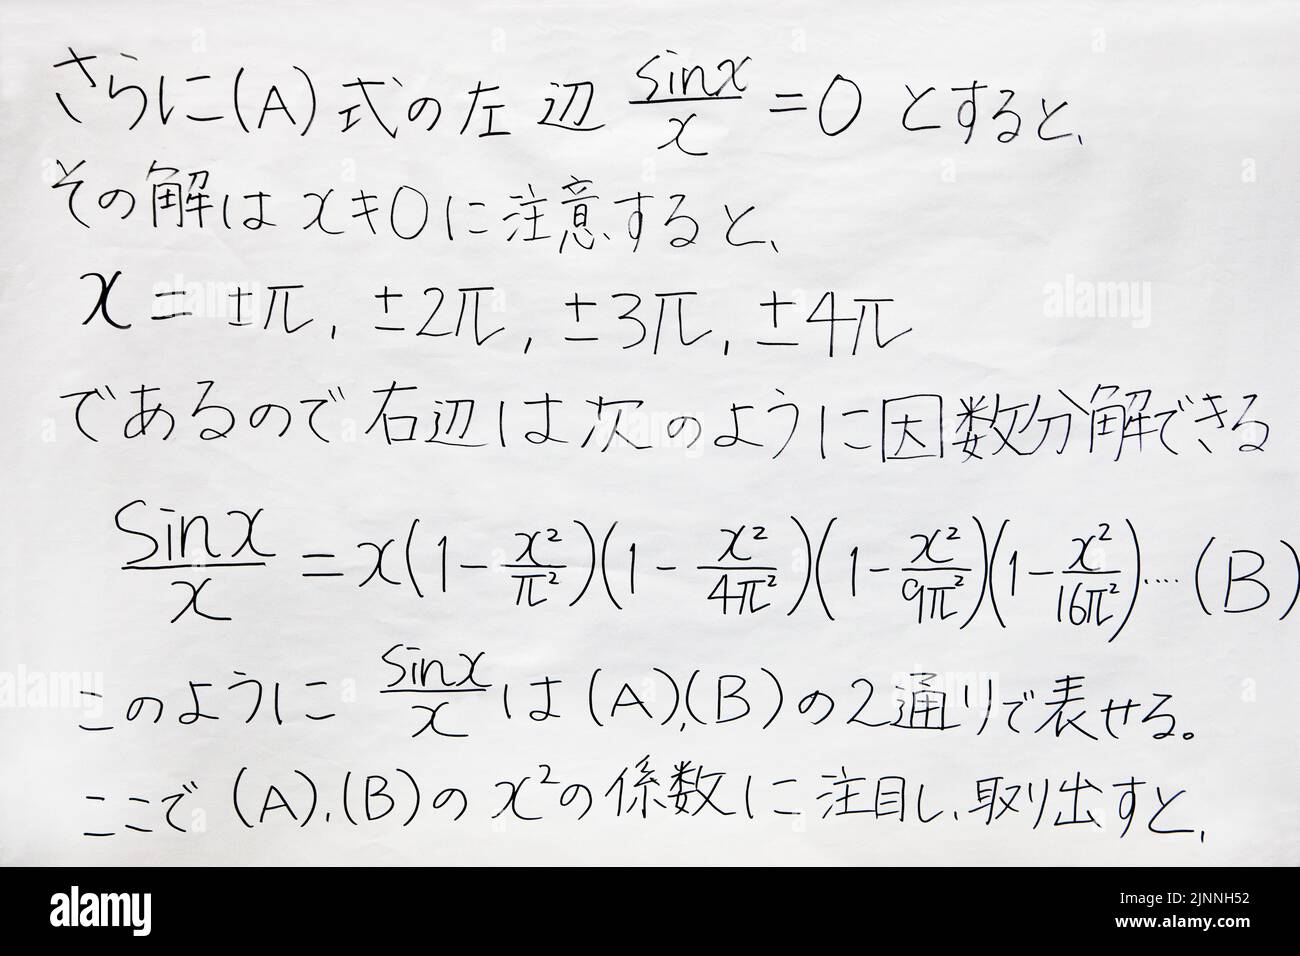 さらに(A)式の左辺 sinx/x = 0 とすると、
その解は x≠0に注意すると、
x = ±π, ±2π, ±3π, ±4π
であるので右辺は次のように因数分解できる
sinx/x = x(1-x²/π²)(1-x²/4π²)(1-x²/9π²)(1-x²/16π²)‥‥(B)
このように sinx/x は(A),(B)の2通りで表せる。
ここで(A),(B)の x²の係数に注目し、取り出すと、
alamy
Image ID: 2JNNH52
www.alamy.com